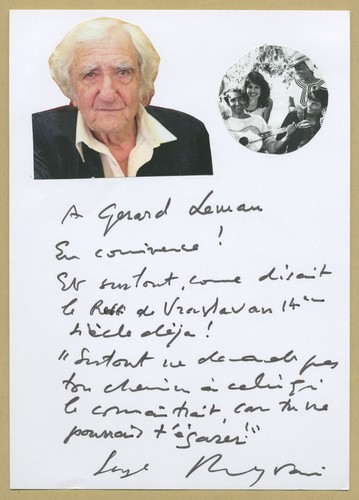 A Gerard Leman
En connivence !
Et surtout, comme disait
le Rabbi de Vratslav au 14ème
siècle déjà !
"Surtout ne demande pas
ton chemin à celui qui
le connaîtrait, car tu ne
pourrais t'égarer !"
Serge Rezvani